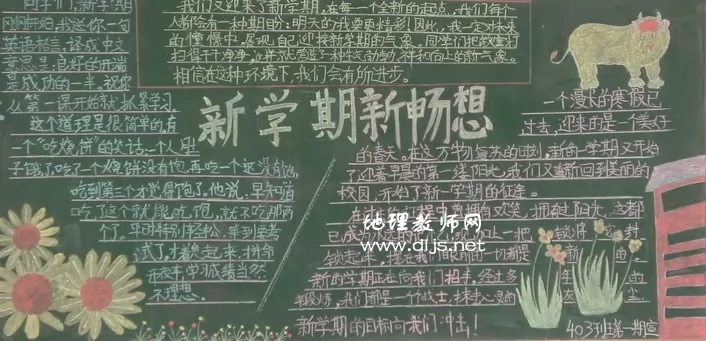 同学们,新学期
刚刚开始,我送你一句
英语格言,译成中文
意思是:良好的开端
是成功的一半。祝你
从第一课开始就抓紧学习。
这个道理是很简单的,有
一个"吃烧饼"的笑话,一个人肚
子饿了,吃了一个烧饼没有饱,再吃一个还没有饱,
吃到第三个才觉得饱了,他说,早知道
吃了这个就能吃饱,就不吃那两
个了。平时特别轻松,等到要考
试了,才紧起来,拼命
开夜车,学习成绩当然
不理想。
我们又迎来了新学期,在每一个全新的起点,我们每个
人都会有一种期盼:明天的我要更精彩!因此,我一定对未来
的憧憬中,展现自己迎接新学期的气象。同学们把教室打
扫得干干净净,这样就营造了一种生长动力、祥和向上的新气象。
相信在这种环境下,我们会有所进步。
新学期新畅想
一个漫长的寒假已
过去,迎来的是一个美好
的春天。在这万物复苏的时刻,新的一学期又开始
了,迎着早晨的第一缕阳光,我们又重新回到美丽的
校园,开始了新一学期的征程。
欢笑,拥抱阳光,这都
已成为
让一把锁将
封
锁起来,
我们眼前的一切都是
新的,
新的学期正在向我们招手,经过多
我们都是一个战士,抹去心灵的
新学期的目标向我们冲击!
403班第一期宣
地理教师网
www.dljs.net